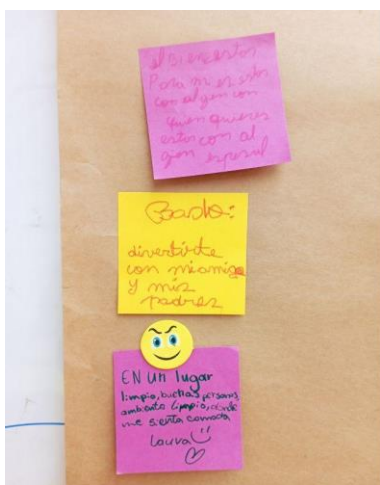 el Bienestar
Para mi es estar
con algen con
quien quieres
estar con al
gen espesial
divertirte
con mi amiga
Y mis
padres
EN UN lugar
limpio, buenas personas,
ambiente limpio, donde
me sienta comoda
Laura